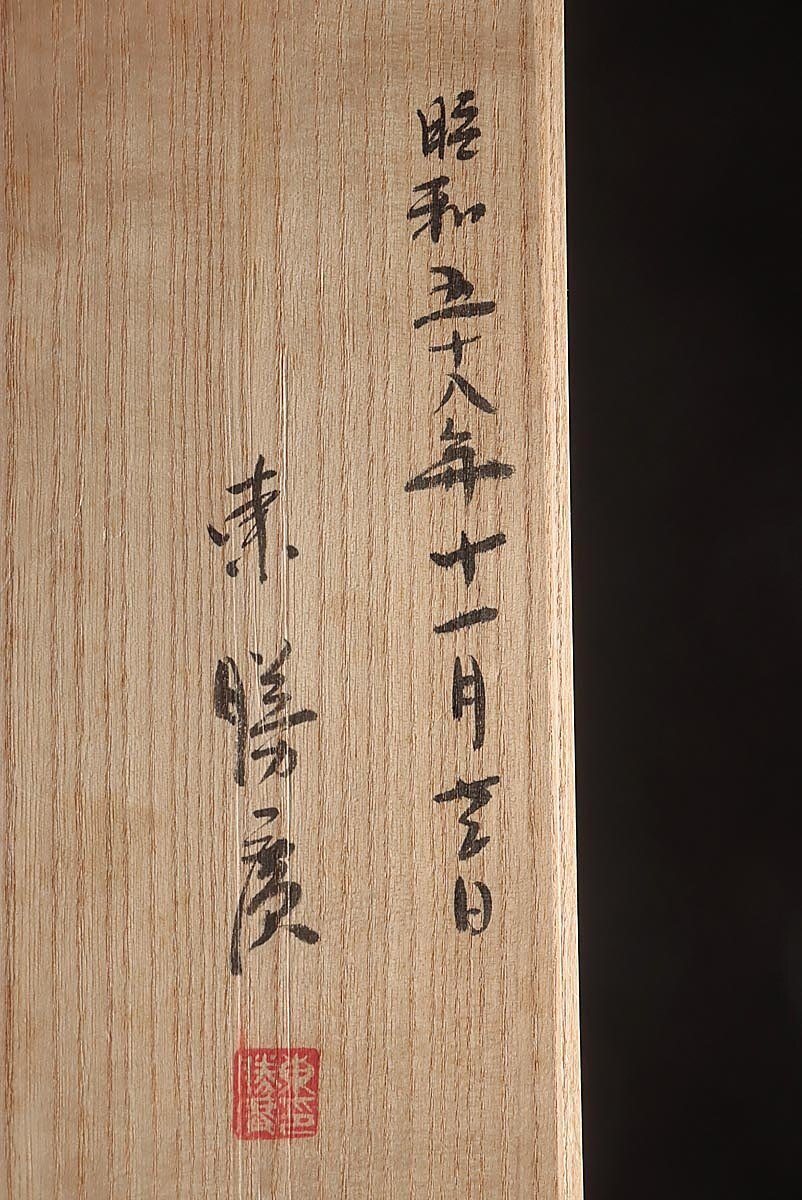 昭和五十八年十一月吉日
東勝廣